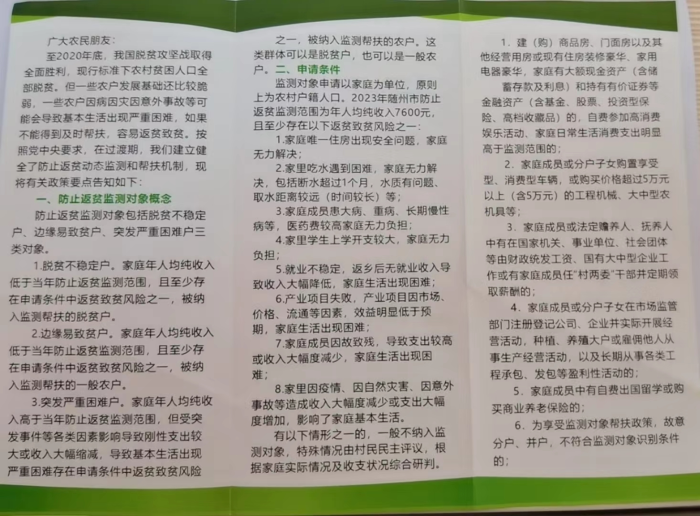 广大农民朋友：
至2020年底，我国脱贫攻坚战取得
全面胜利，现行标准下农村贫困人口全部
全部脱贫。但一些农户发展基础还比较脆
弱，一些农户因病因灾因意外事故等可
能会导致基本生活出现严重困难，如果
不能得到及时帮扶，容易返贫致贫。按
照党中央要求，在过渡期，我们建立健
全了防止返贫动态监测和帮扶机制，现
将有关政策要点告知如下：
一、防止返贫监测对象概念
防止返贫监测对象包括脱贫不稳定
户、边缘易致贫户、突发严重困难户三
类对象。
1.脱贫不稳定户。家庭年人均纯收入
低于当年防止返贫监测范围，且至少存
在申请条件中返贫致贫风险之一，被纳
入监测帮扶的脱贫户。
2.边缘易致贫户。家庭年人均纯收入
低于当年防止返贫监测范围，且至少存
在申请条件中返贫致贫风险之一，被纳
入监测帮扶的一般农户。
3.突发严重困难户。家庭年人均纯收
入高于当年防止返贫监测范围，但受突
发事件等各类因素影响导致刚性支出较
大或收入大幅缩减，导致基本生活出现
严重困难存在申请条件中返贫致贫风险
之一，被纳入监测帮扶的农户。这
类群体可以是脱贫户，也可以是一般农
户。二、申请条件
监测对象申请以家庭为单位，原则
上为农村户籍人口。2023年随州市防止
返贫监测范围为年人均纯收入7600元，
且至少存在以下返贫致贫风险之一：
1.家庭唯一住房出现安全问题，家庭
无力解决；
2.家里吃水遇到困难，家庭无力解
决，包括断水超过1个月，水质有问题、
取水距离较远（时间较长）等；
3.家庭成员患大病、重病、长期慢性
病等，医药费较高家庭无力负担；
4.家里学生上学开支较大，家庭无力
负担；
5.就业不稳定，返乡后无就业收入导
致收入大幅降低，家庭生活出现困难；
6.产业项目失败，产业项目因市场、
价格、流通等因素，效益明显低于预
期，家庭生活出现困难；
7.家庭成员因故致残，导致支出较高
或收入大幅度减少，家庭生活出现困
难；
8.家里因疫情、因自然灾害、因意外
事故等造成收入大幅度减少或支出大幅
度增加，影响了家庭基本生活。
有以下情形之一的，一般不纳入监
测对象，特殊情况由村民民主评议，根
据家庭实际情况及收支状况综合研判。
1．建（购）商品房、门面房以及其
他经营用房或现有住房装修豪华、家用
电器豪华，家庭有大额现金资产（含储
蓄存款及利息）和持有有价证券等
金融资产（含基金、股票、投资型保
险、高档收藏品）的，自费参加高消费
娱乐活动、家庭日常生活消费支出明显
高于监测范围的；
2．家庭成员或分户子女购置享受
型、消费型车辆，或购买价格超过5万元
以上（含5万元）的工程机械、大中型农
机具等；
3．家庭成员或法定赡养人、抚养人
中有在国家机关、事业单位、社会团体
等由财政统发工资、国有大中型企业工
作或有家庭成员任“村两委”干部并定期领
取薪酬的；
4．家庭成员或分户子女在市场监管
部门注册登记公司、企业并实际开展经
营活动，种植、养殖大户或雇佣他人从
事生产经营活动，以及长期从事各类工
程承包、发包等盈利性活动的；
5．家庭成员中有自费出国留学或购
买商业养老保险的；
6．为享受监测对象帮扶政策，故意
分户、并户，不符合监测对象识别条件
的；